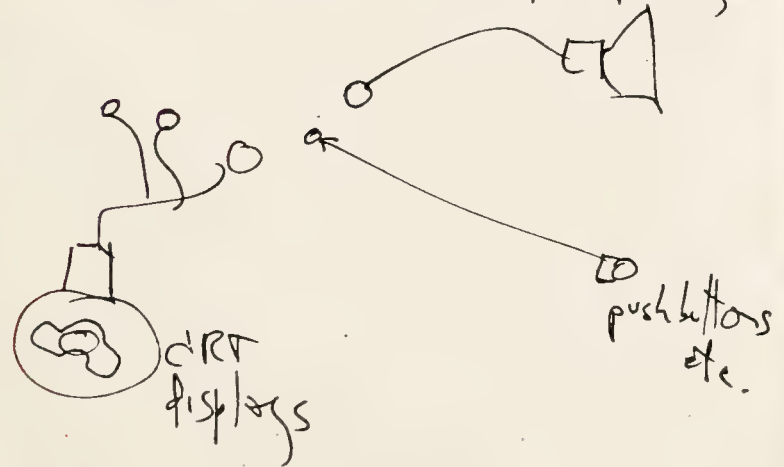 CRT
displays
pushbuttons
etc.